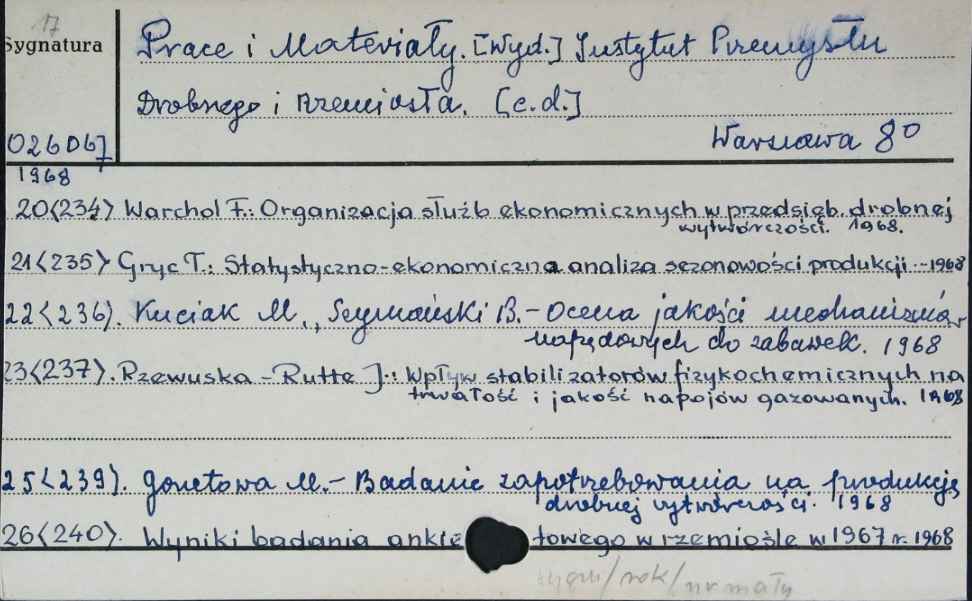 17
Sygnatura
Prace i Materiały. [Wyd.] Instytut Przemysłu
Drobnego i Rzemiosła. [c.d.]
026067
Warszawa 8º
1968
20<234> Warchoł F.: Organizacja służb ekonomicznych w przedsięb. drobnej
wytwórczości. 1968.
21<235> Gryc T.: Statystyczno-ekonomiczna analiza sezonowości produkcji - 1968
22<236>. Kuciak M., Szymański B. - Ocena jakości mechanizmów
napędowych do zabawek. 1968
23<237>. Rzewuska - Rutte J.: Wpływ stabilizatorów fizykochemicznych na
trwałość i jakość napojów gazowanych. 1968
25<239>. Gonetowa M. - Badanie zapotrzebowania na produkcję
drobnej wytwórczości. 1968
26<240>. Wyniki badania ankietowego w rzemiośle w 1967 r. 1968
/rok/nr mały